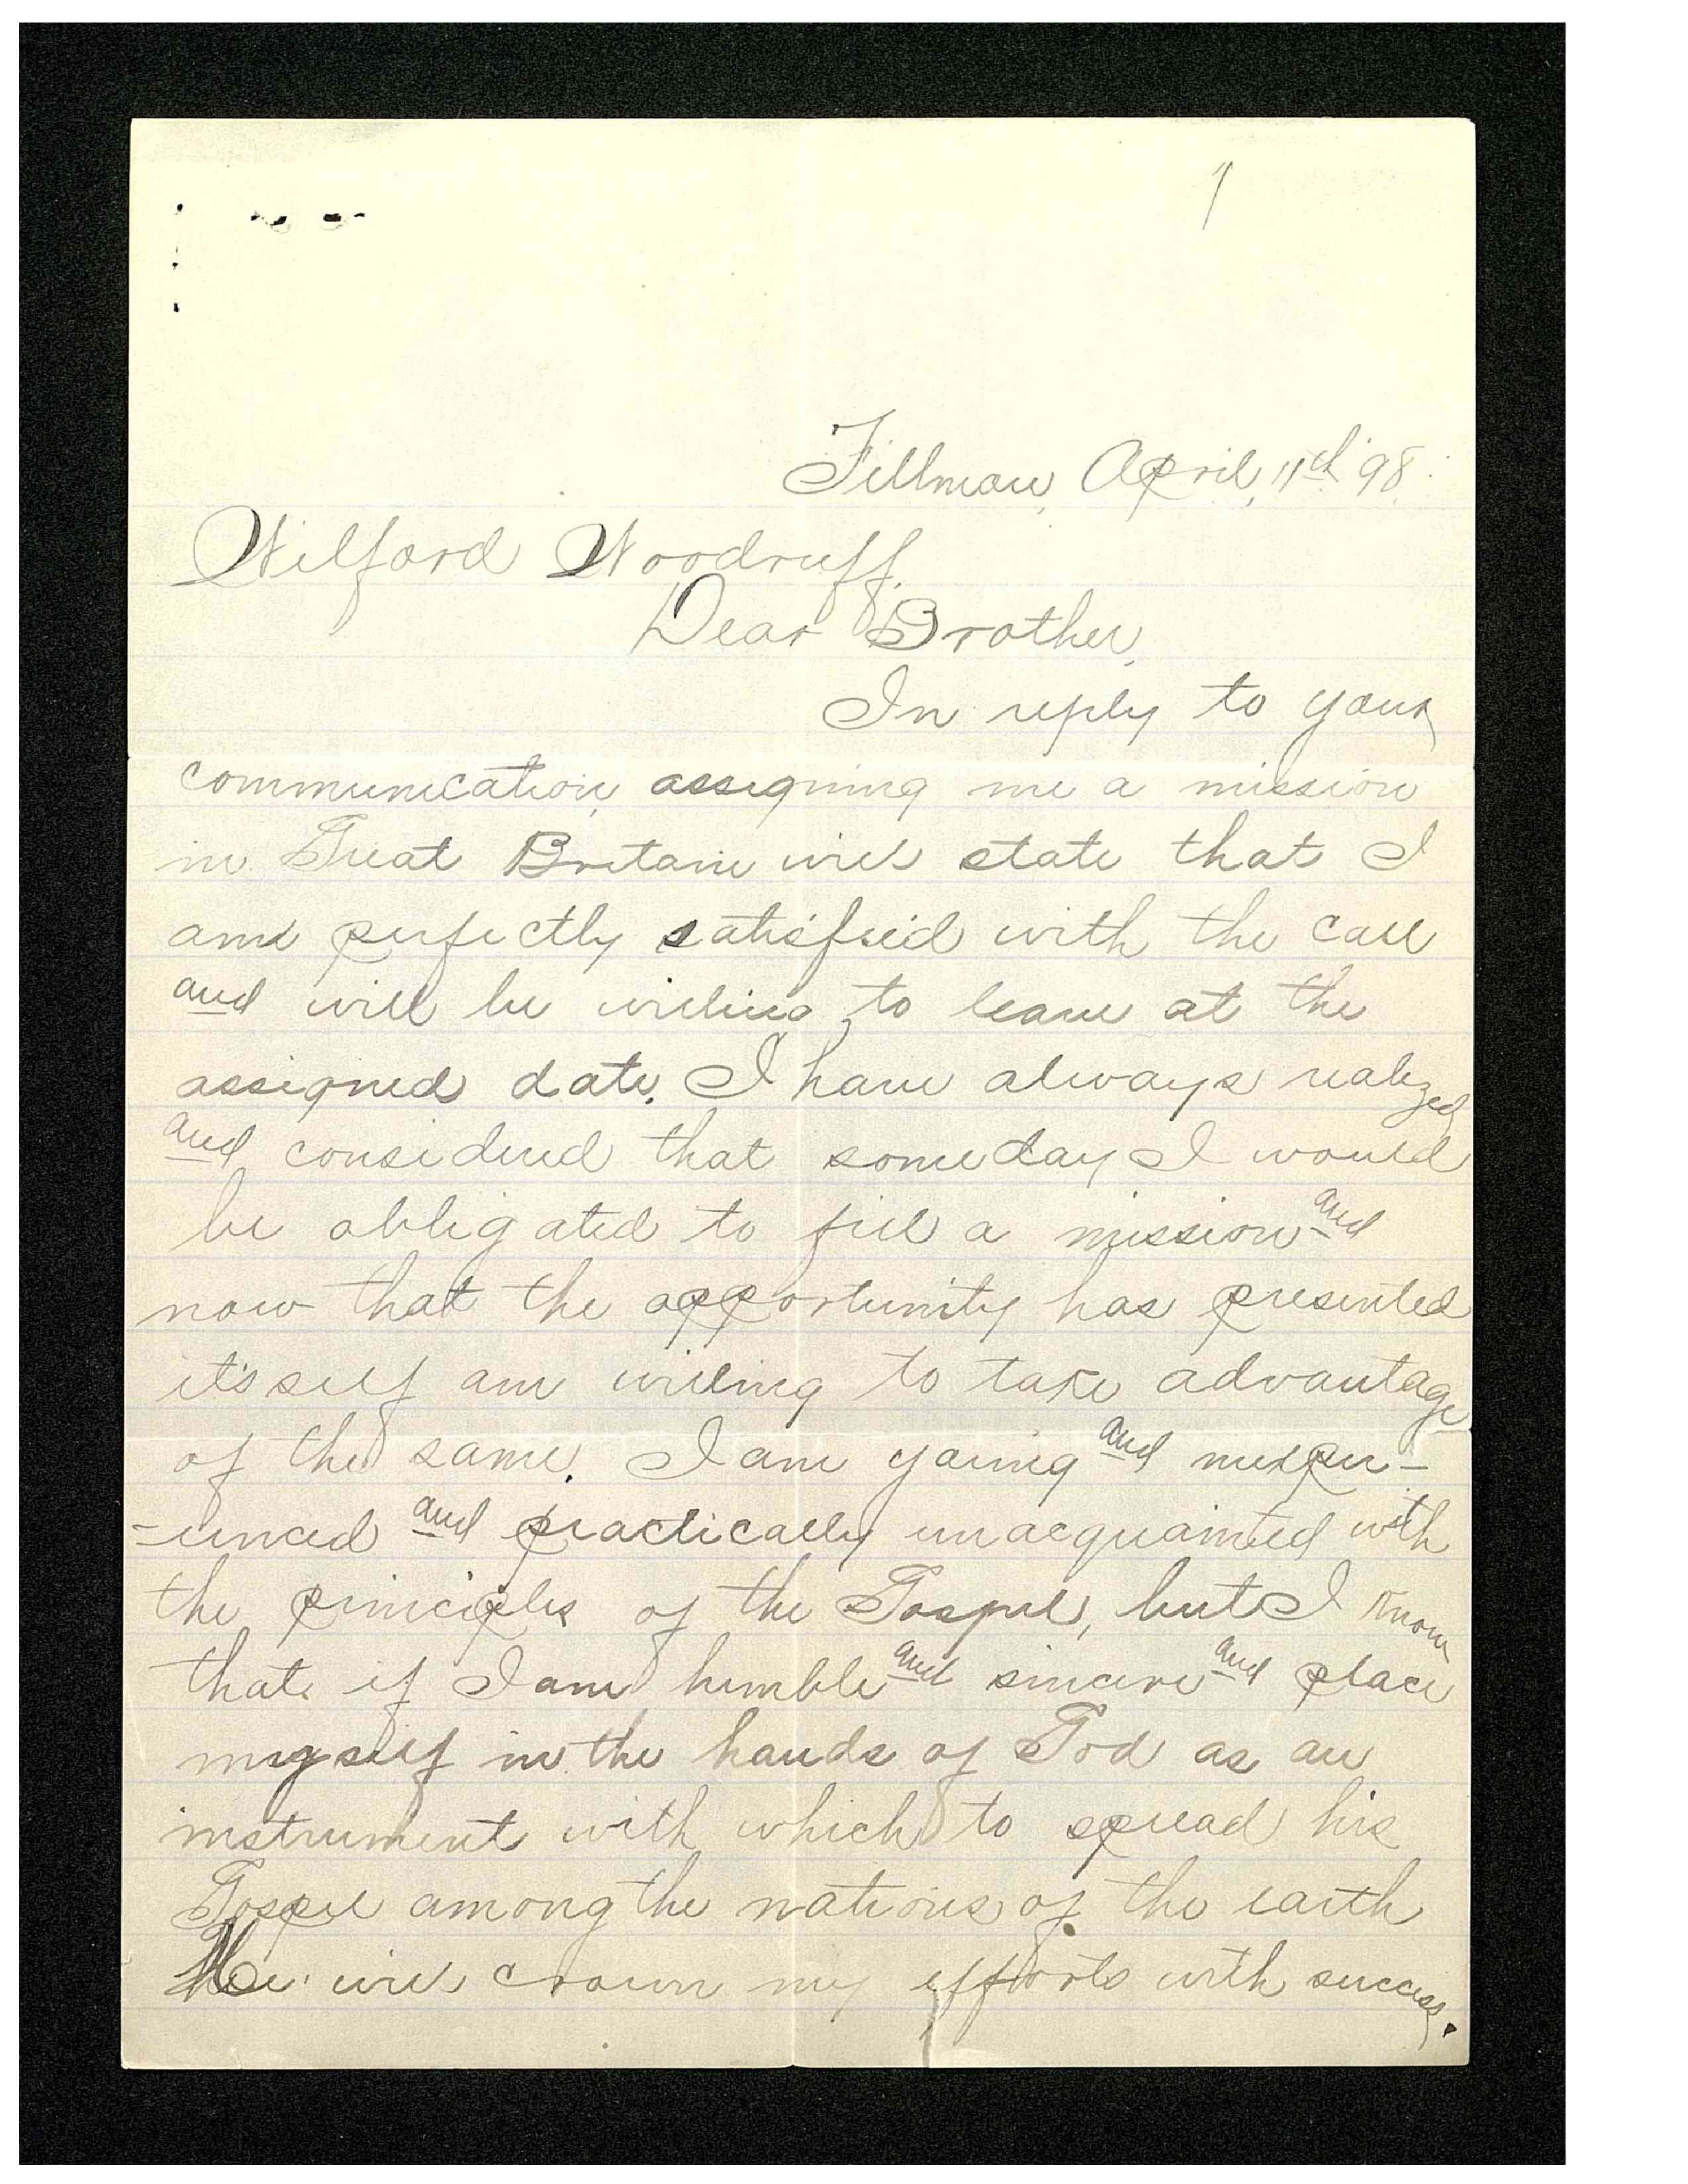 1
Fillmore, April, 11th '98.
Wilford Woodruff.
Dear Brother,
In reply to your
communication, assigning me a mission
in Great Britain will state that I
am perfectly satisfied with the call
and will be willing to leave at the
assigned date. I have always realized
and considered that some day I would
be obligated to fill a mission and
now that the opportunity has presented
it'sself am willing to take advantage
of the same. I am young and inexper-
-ienced and practically unacquainted with
the principles of the Gospel, but I know
that if I am humble and sincere and place
myself in the hands of God as an
instrument with which to spread his
Gospel among the nations of the earth
He will crown my efforts with success.